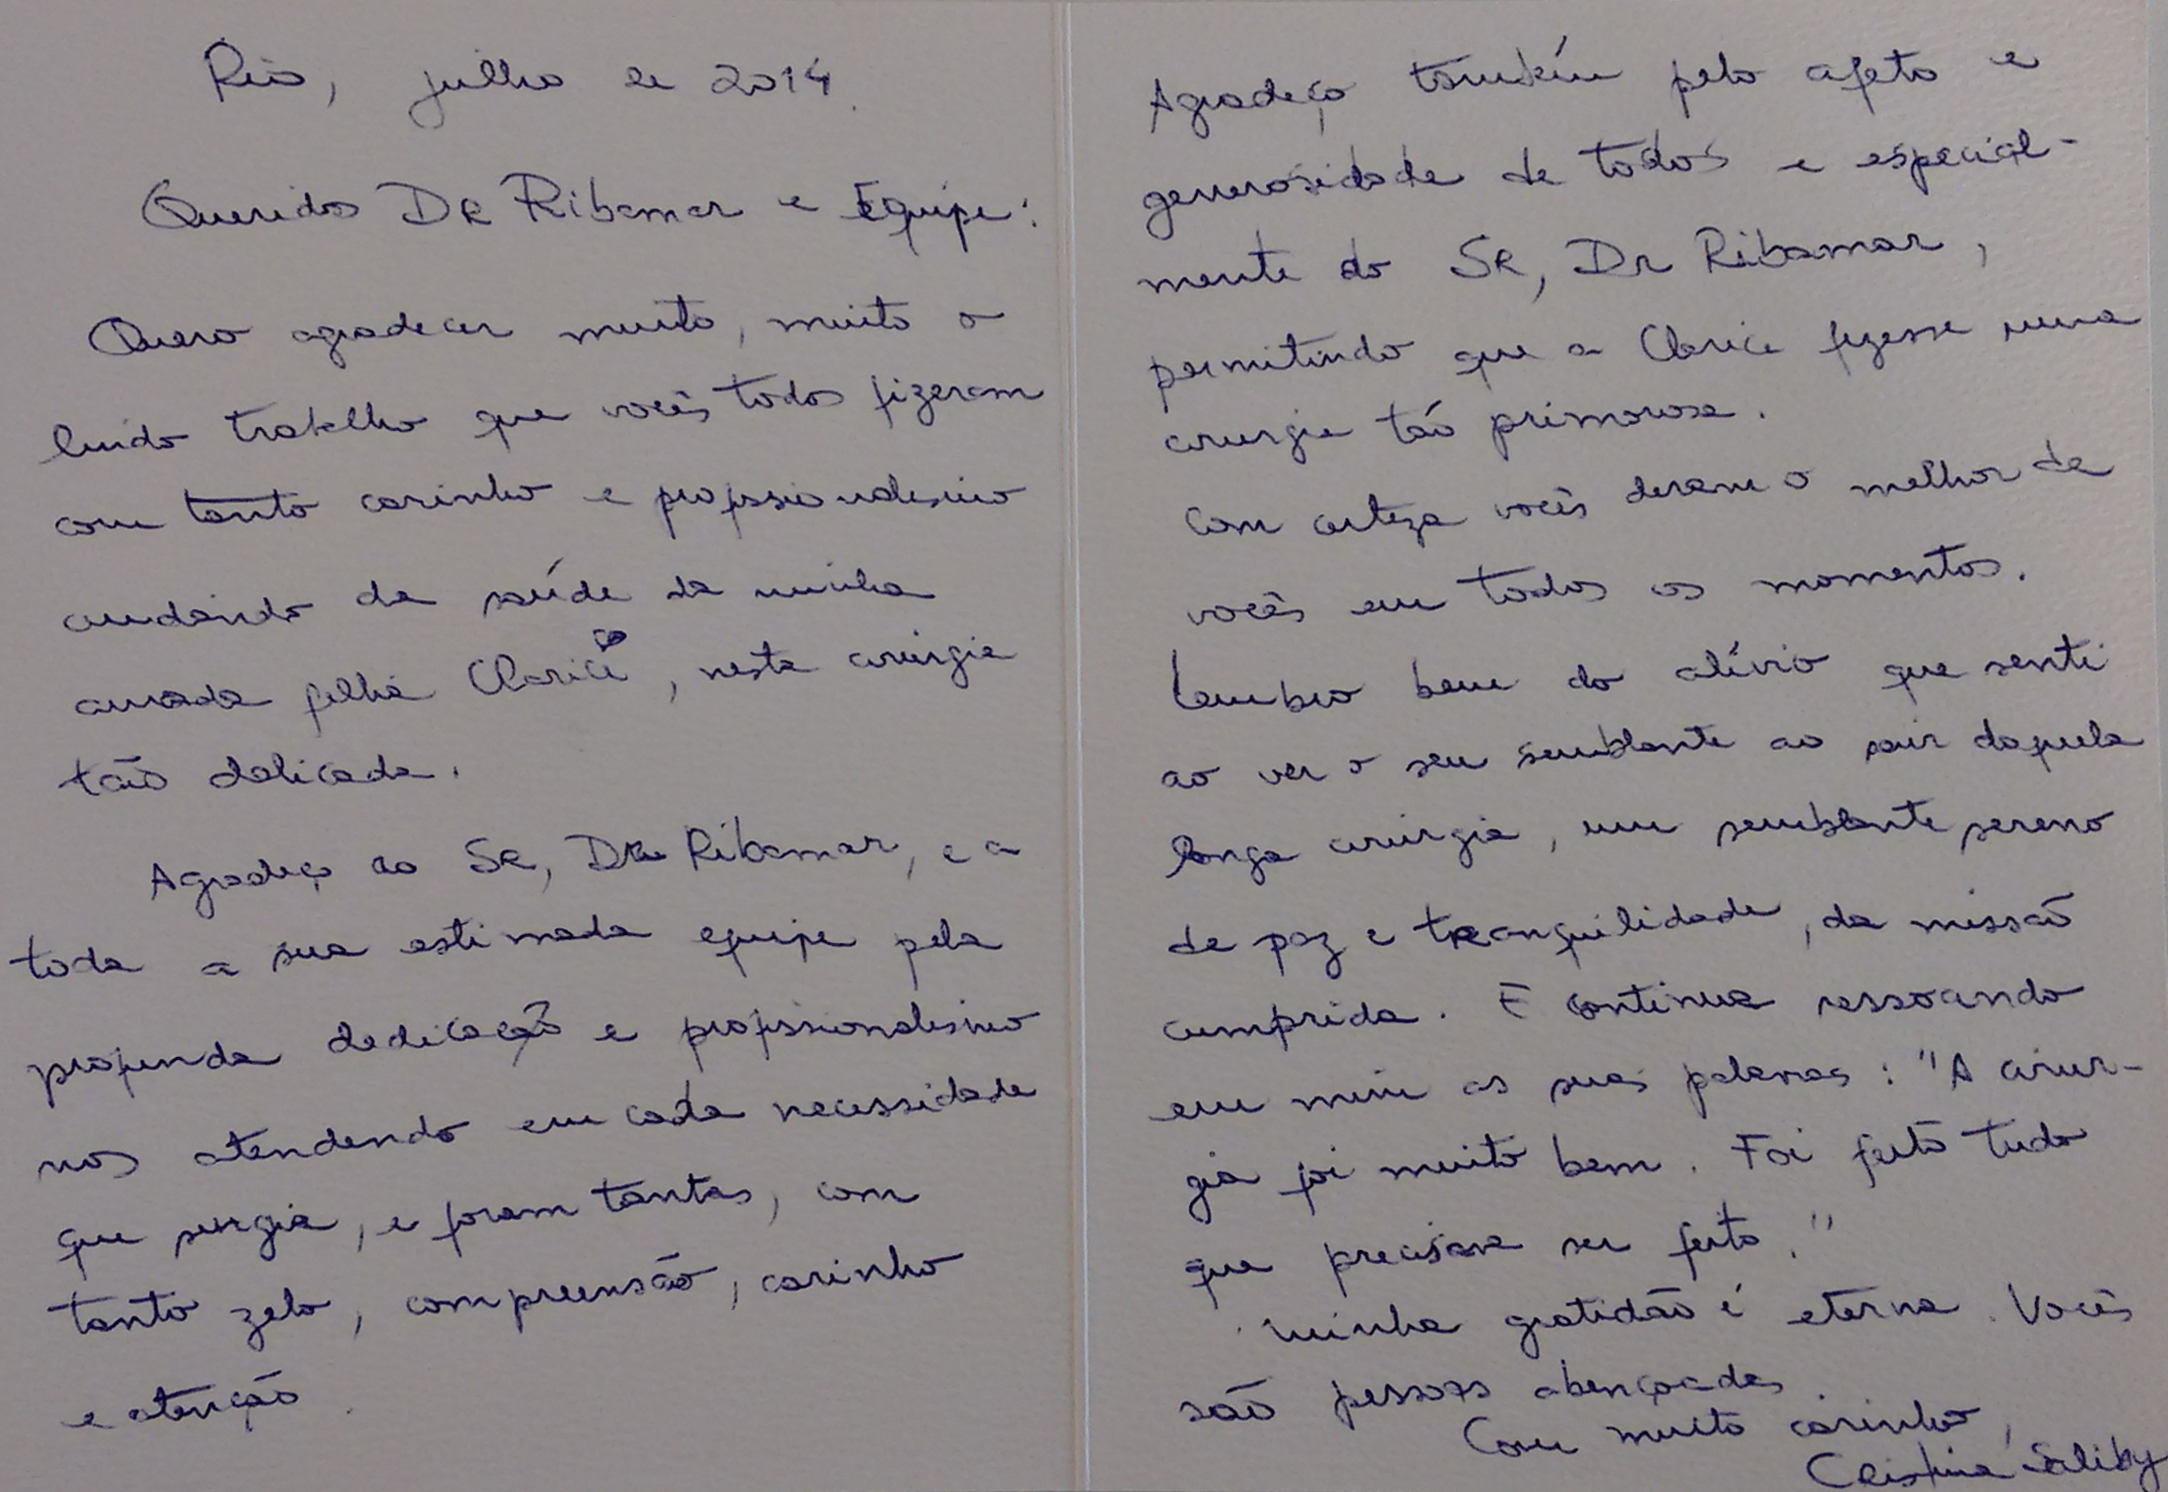 Rio, julho de 2014.
Queridos DR Ribamar e Equipe:
Quero agradecer muito, muito o
lindo trabalho que vocês todos fizeram
com tanto carinho e profissionalismo
cuidando da saúde da minha
amada filha Clarice, nesta cirurgia
tão delicada.
Agradeço ao SR, DR Ribamar, e a
toda a sua estimada equipe pela
profunda dedicação e profissionalismo
nos atendendo em cada necessidade
que surgia, e foram tantas, com
tanto zelo, compreensão, carinho
e atenção.
Agradeço também pelo afeto e
generosidade de todos e especial-
mente do SR, Dr Ribamar,
permitindo que a Clarice fizesse uma
cirurgia tão primorosa.
Com certeza vocês deram o melhor de
vocês em todos os momentos.
Lembro bem do alívio que senti
ao ver o seu semblante ao sair daquela
longa cirurgia, um semblante sereno
de paz e tranquilidade, da missão
cumprida. E continua ressoando
em mim as suas palavras: "A cirur-
gia foi muito bem. Foi feito tudo
que precisava ser feito."
Minha gratidão é eterna. Vocês
são pessoas abençoadas.
Com muito carinho,
Cristina Saliby